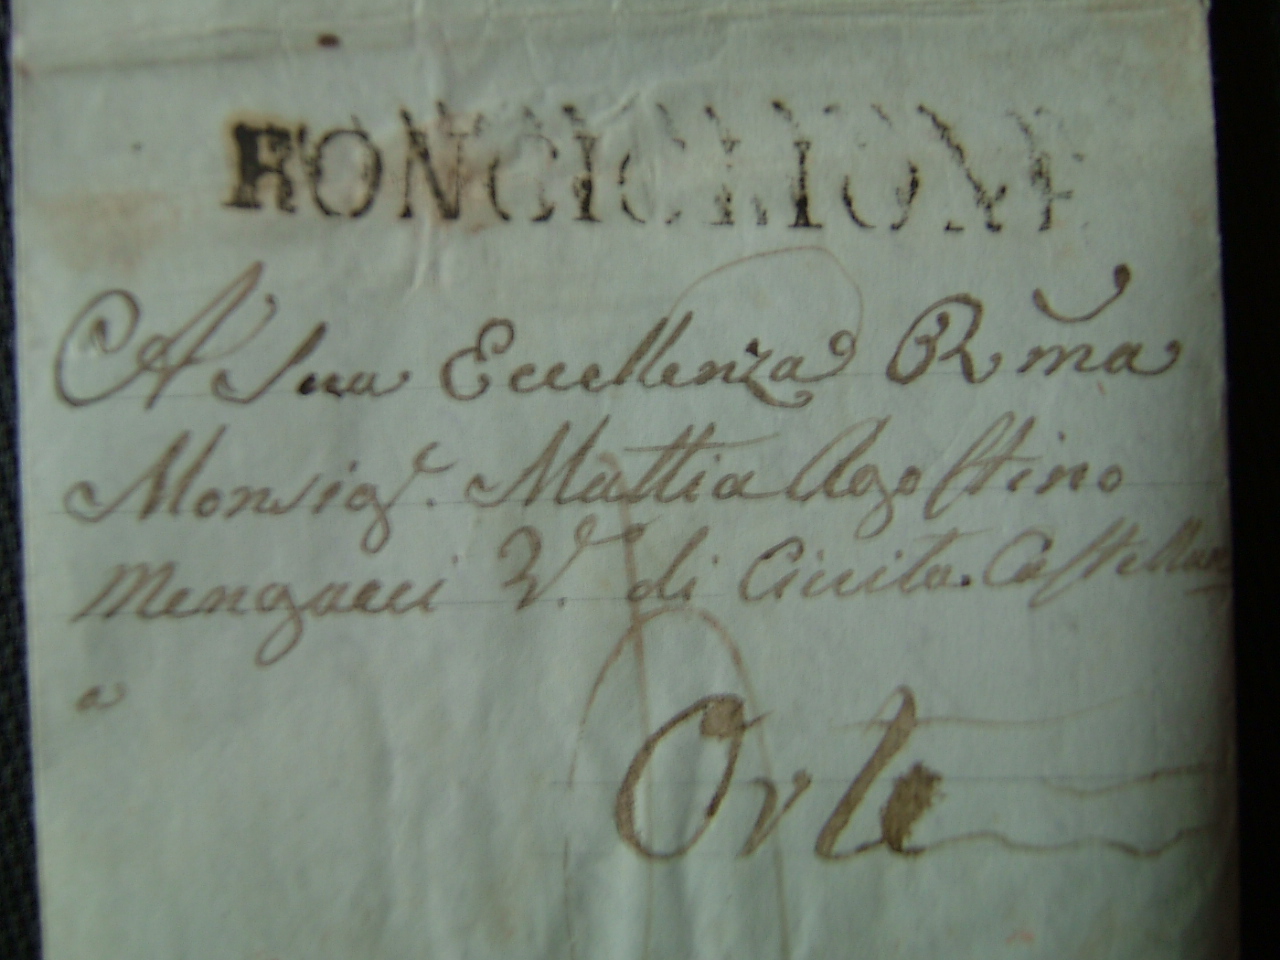 RONCIGLIONE
A Sua Eccellenza Rm̃a
Monsigr. Mattia Agostino
Mengacci V. di Civita Castellana
a
Orte